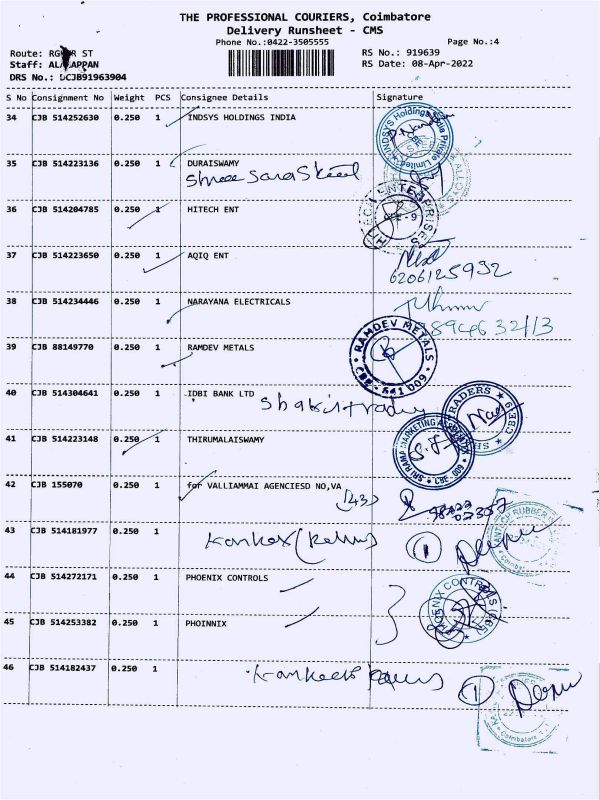 THE PROFESSIONAL COURIERS, Coimbatore
Delivery Runsheet - CMS
Phone No.:0422-3505555 Page No.:4
Route: ST RS No.: 919639
Staff: RS Date: 08-Apr-2022
DRS No.: DCJB91963904
S No Consignment No Weight PCS Consignee Details Signature
34 CJB 514252630 0.250 1 INDSYS HOLDINGS INDIA
INDSYS Holdings India Private Limited
35 CJB 514223136 0.250 1 DURAISWAMY
Shree Saras Steel
ALLOYS
36 CJB 514204785 0.250 1 HITECH ENT
HITECH ENTERPRISES
CBE-9
37 CJB 514223650 0.250 1 AQIQ ENT
6206125932
38 CJB 514234446 0.250 1 NARAYANA ELECTRICALS
39 CJB 88149770 0.250 1 RAMDEV METALS
RAMDEV METALS
CBE - 641 009
40 CJB 514304641 0.250 1 IDBI BANK LTD
TRADERS
41 CJB 514223148 0.250 1 THIRUMALAISWAMY
SRI RAMA MARKETING
CBE -009
42 CJB 155070 0.250 1 for VALLIAMMAI AGENCIESD NO,VA
(43)
43 CJB 514181977 0.250 1
1
RUBBER
44 CJB 514272171 0.250 1 PHOENIX CONTROLS
PHOENIX CONTROLS
45 CJB 514253382 0.250 1 PHOINNIX
46 CJB 514182437 0.250 1
1
Coimbatore